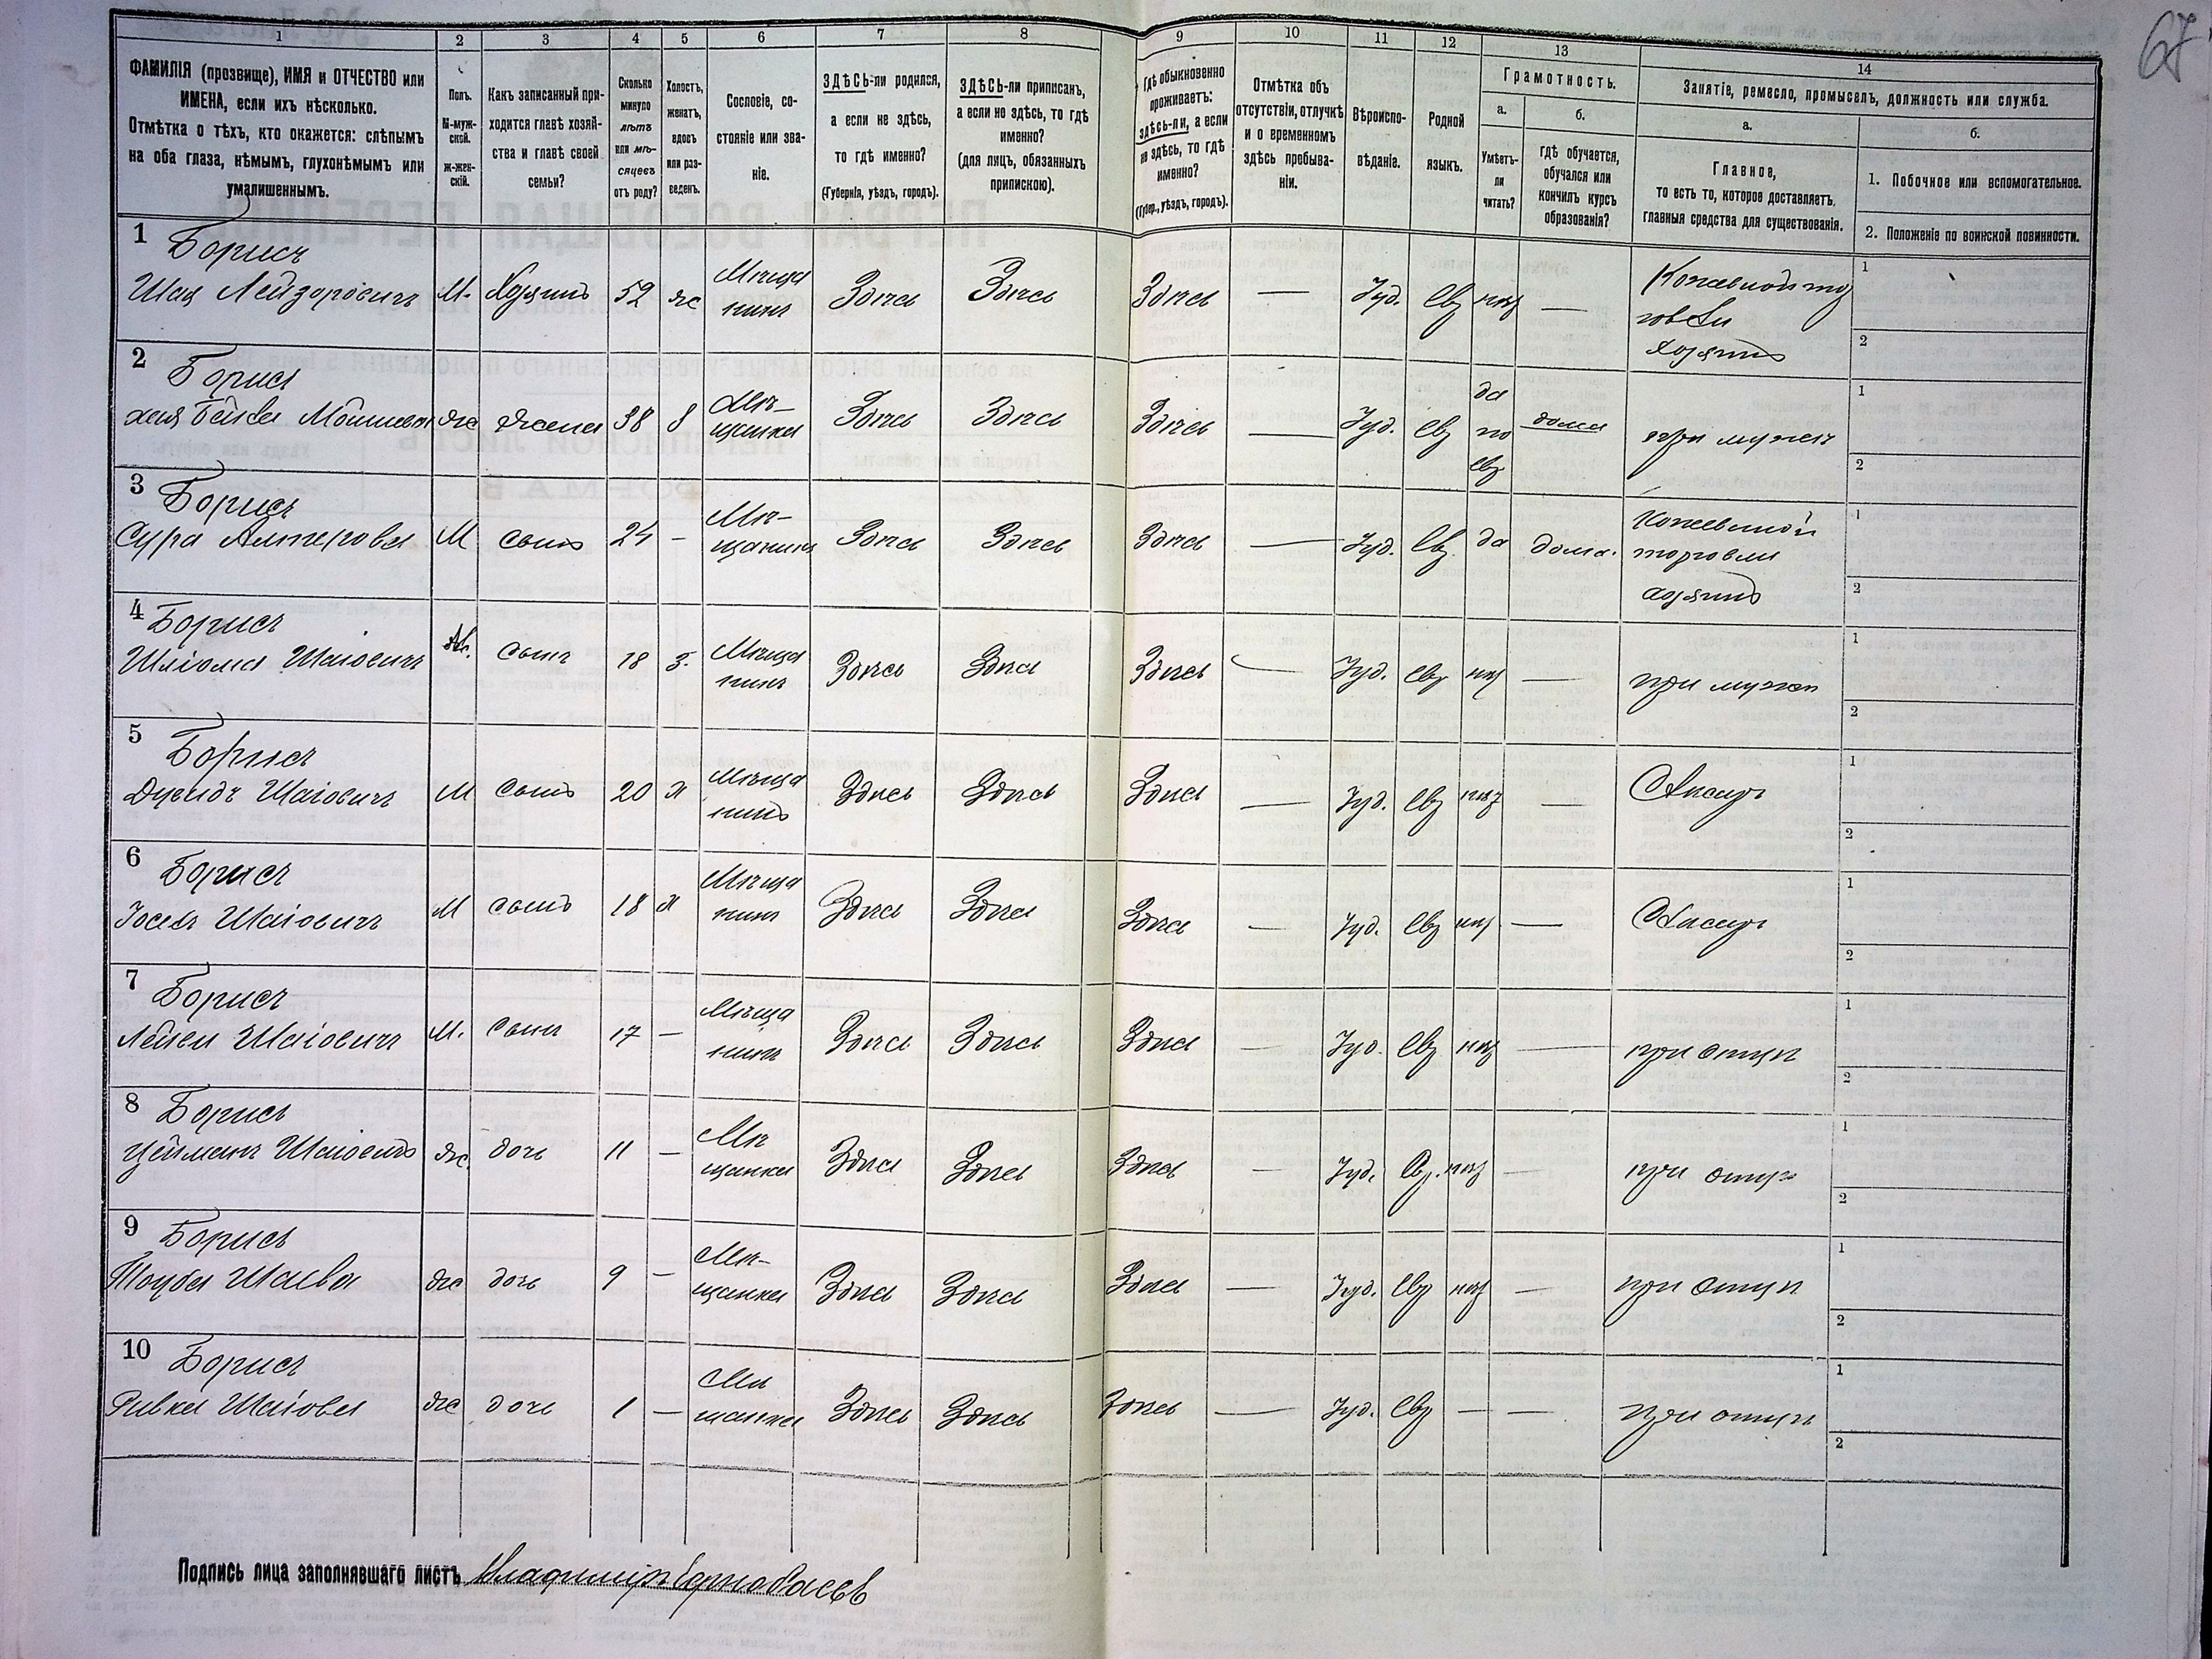 67
1 2 3 4 5 6 7 8 9 10 11 12 13 14
ФАМИЛІЯ (прозвище), ИМЯ и ОТЧЕСТВО или
ИМЕНА, если ихъ нѣсколько.
Отмѣтка о тѣхъ, кто окажется: слѣпымъ
на оба глаза, нѣмымъ, глухонѣмымъ или
умалишеннымъ.
Полъ.
М-муж-
ской.
Ж-жен-
скій.
Какъ записанный при-
ходится главѣ хозяй-
ства и главѣ своей
семьи?
Сколько
минуло
лѣтъ
или мѣ-
сяцевъ
отъ роду?
Холостъ,
женатъ,
вдовъ
или раз-
веденъ.
Сословіе, со-
стояніе или зва-
ніе.
ЗДѢСЬ-ли родился,
а если не здѣсь,
то гдѣ именно?
(Губернія, уѣздъ, городъ).
ЗДѢСЬ-ли приписанъ,
а если не здѣсь, то гдѣ
именно?
(для лицъ, обязанныхъ
припискою).
Гдѣ обыкновенно
проживаетъ:
здѣсь-ли, а если
не здѣсь, то гдѣ
именно?
(Губер., уѣздъ, городъ).
Отмѣтка объ
отсутствіи, отлучкѣ
и о временномъ
здѣсь пребыва-
ніи.
Вѣроиспо-
вѣданіе.
Родной
языкъ.
Грамотность.
а.
Умѣетъ-
ли
читать?
б.
гдѣ обучается,
обучался или
кончилъ курсъ
образованія?
Занятіе, ремесло, промыселъ, должность или служба.
а.
Главное,
то есть то, которое доставляетъ
главныя средства для существованія.
б.
1. Побочное или вспомогательное.
2. Положеніе по воинской повинности.
1 Борисъ
Шая Лейзоровичъ М. Хозяинъ 52 ж Мѣща
нинъ Здѣсь Здѣсь Здѣсь — Іуд. Евр нѣт —
хозяинъ
1
2
2 Борисъ
Хая Бейла ж жена 38 Мѣ-
щанка Здѣсь Здѣсь Здѣсь — Іуд. Евр да
по
евр дома при мужѣ
1
2
3 Борисъ
Сура Алтерова М сынъ 24 — Мѣ-
щанинъ Здѣсь Здѣсь Здѣсь — Іуд. Евр. да дома. Кожевной
торговли
хозяинъ
1
2
4 Борисъ
Шліома Шаіовичъ сынъ 18 Мѣща
нинъ Здѣсь Здѣсь Здѣсь — Іуд. Евр нѣт — при мужѣ
1
2
5 Борисъ
Дувидъ Шаіовичъ М сынъ 20 Х Мѣща
нинъ Здѣсь Здѣсь Здѣсь — Іуд. Евр нѣт — Слесарь
1
2
6 Борисъ
Іосель Шаіовичъ М сынъ 18 Х Мѣща
нинъ Здѣсь Здѣсь Здѣсь — Іуд. Евр нѣт — Слесарь
1
2
7 Борисъ
Шаіовичъ М. сынъ 17 — Мѣща
нинъ Здѣсь Здѣсь Здѣсь — Іуд. Евр нѣт — при отцѣ
1
2
8 Борисъ
ж. дочь 11 — Мѣ
щанка Здѣсь Здѣсь Здѣсь — Іуд. Евр. нѣт — при отцѣ
1
2
9 Борисъ
Тоуба Шаева ж дочь 9 — Мѣ-
щанка Здѣсь Здѣсь Здѣсь — Іуд. Евр нѣт — при отцѣ
1
2
10 Борисъ
Ривка Шаіова ж дочь 1 — Мѣ
щанка Здѣсь Здѣсь Здѣсь — Іуд. Евр — — при отцѣ
1
2
Подпись лица заполнявшаго листъ Владиміръ